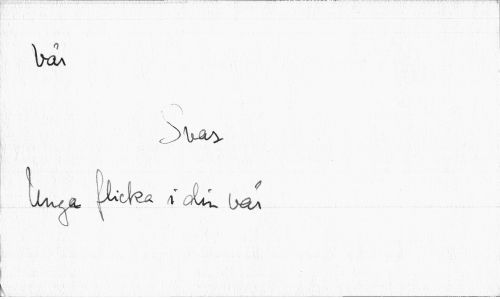 vår
Svas
Unga flicka i din vår